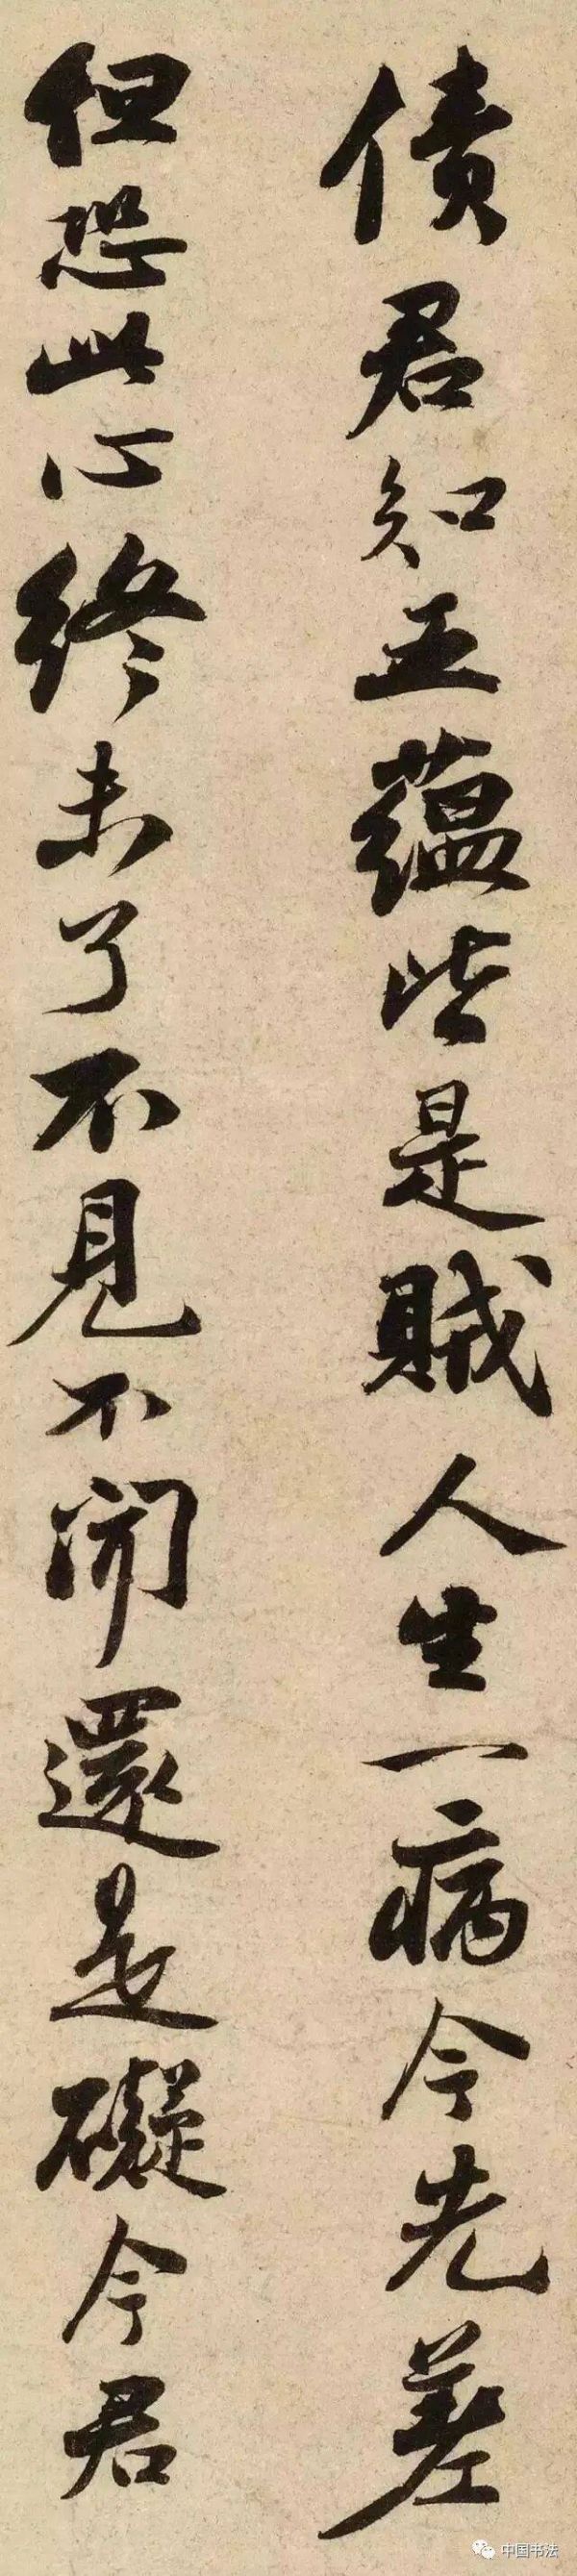 債君知五蘊皆是賊人生一病今先差
但恐此心終未了不見不聞還是礙今君
中国书法